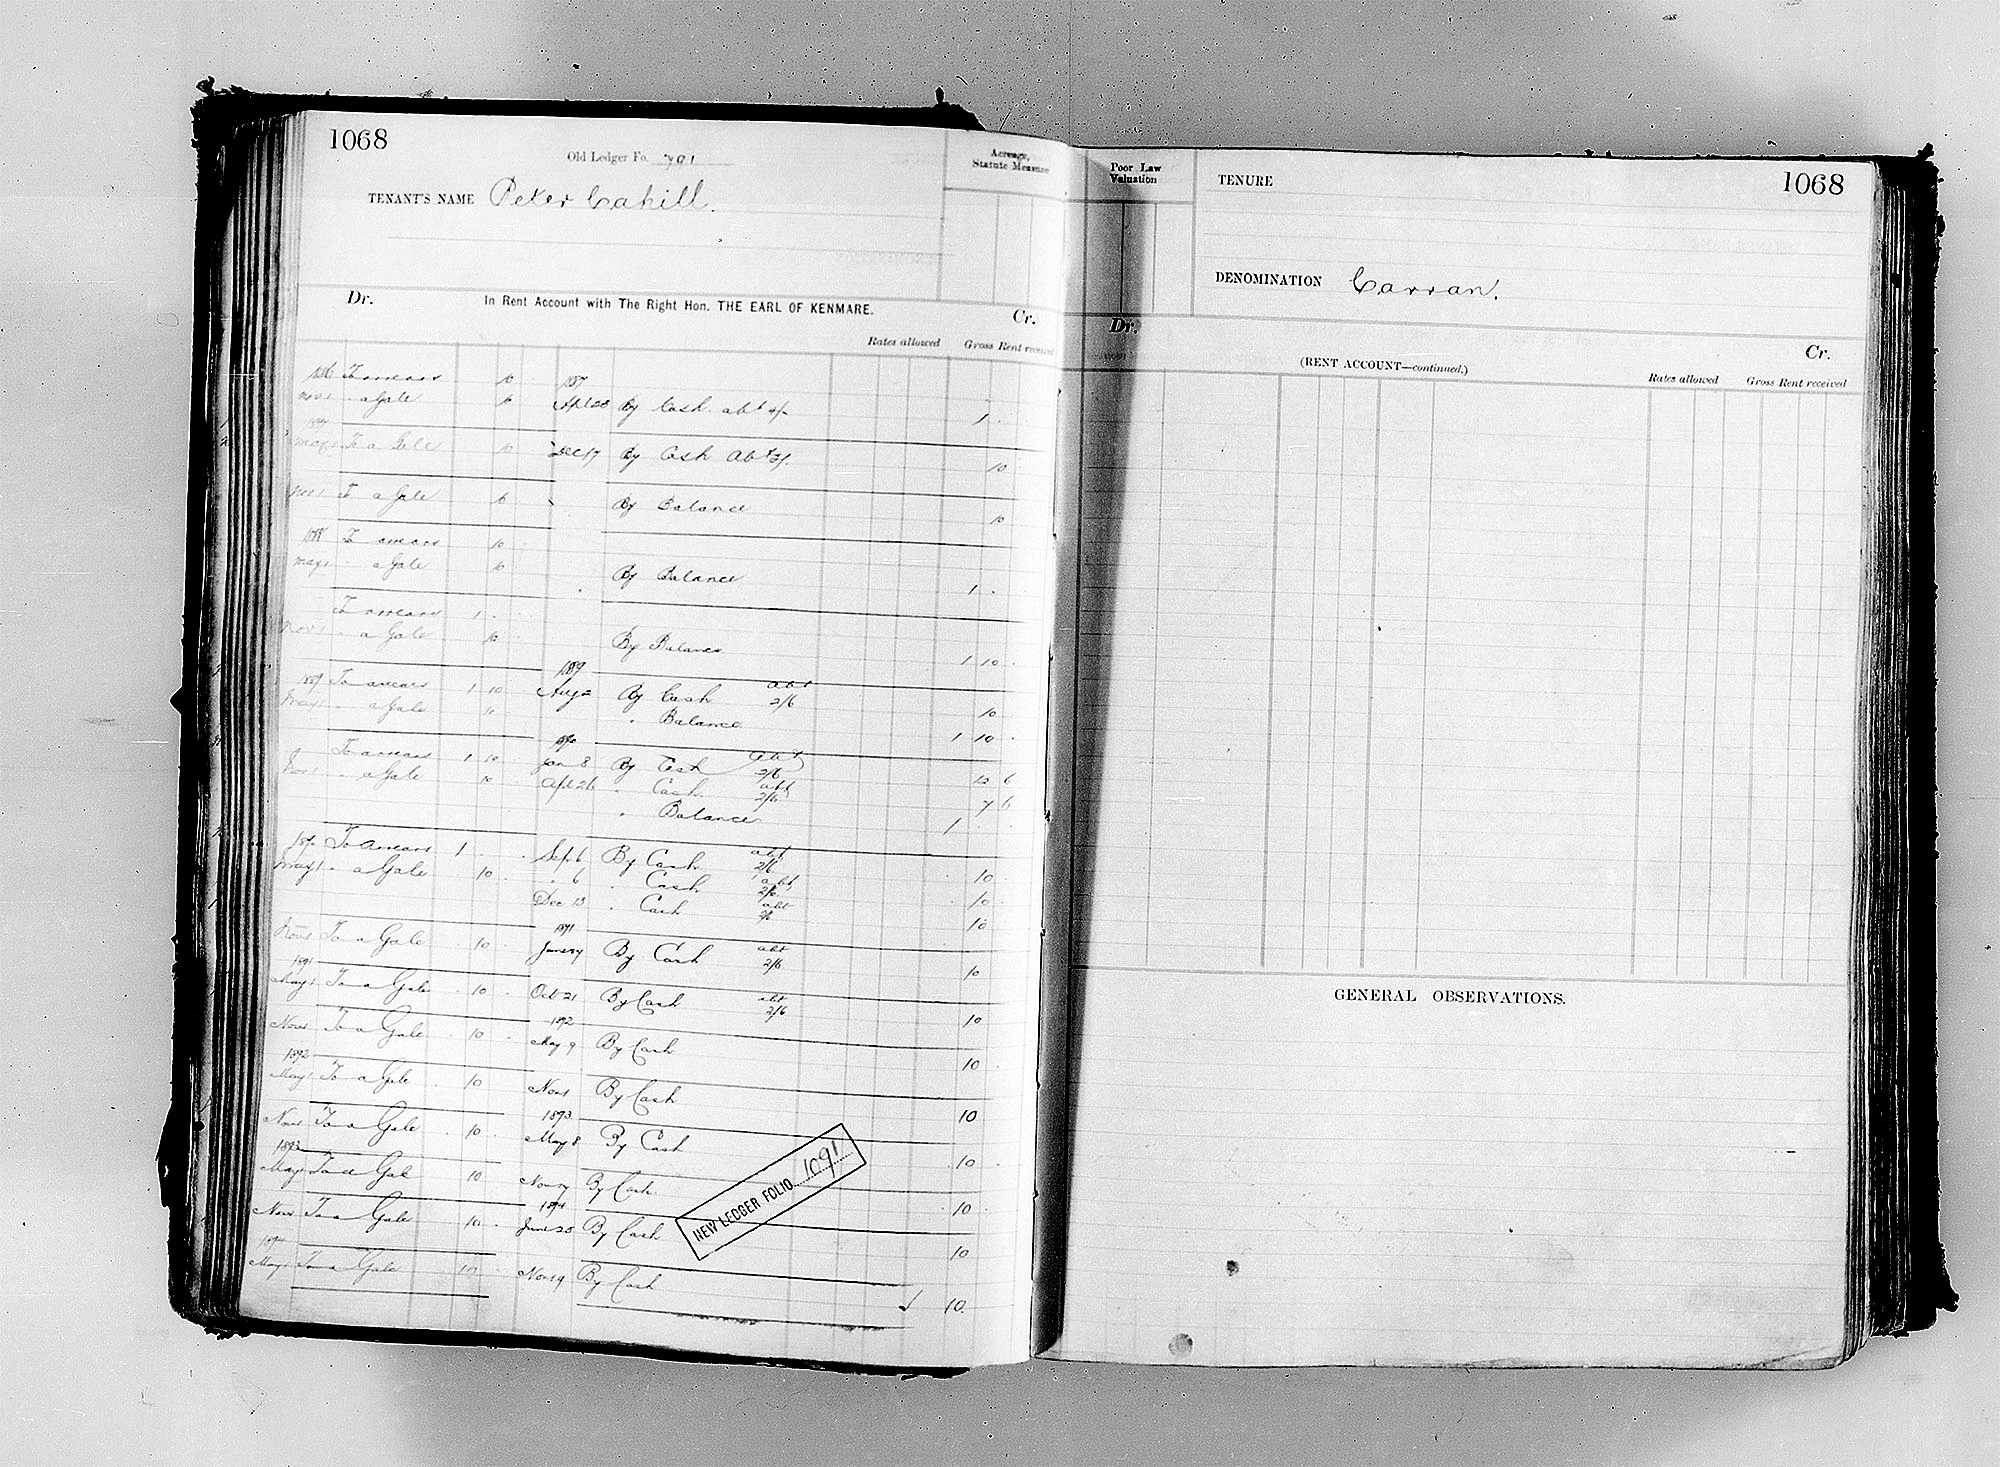 1068
Old Ledger Fo. 791
TENANT'S NAME Peter Cahill.
Acreage, Statute Measure
Dr. In Rent Account with The Right Hon. THE EARL OF KENMARE. Cr.
Rates allowed Gross Rent received
1886 To arrears 10 1887
Nov 1 " a Gale 10 Apl 28 By Cash abt 4/- 1 .
1887
May 1 To a Gale 10 Dec 17 By Cash Abt 2/. 10
Nov 1 To a Gale 10 By Balance 10
1888 To arrears 10
May 1 a Gale 10 By Balance 1 .
To arrears 1 .
Nov 1 " a Gale 10 By Balance 1 10
1889
1889 To arrears 1 10 Aug 2 By Cash abt 2/6 10
May 1 " a Gale 10 " Balance 1 10
1890
To arrears 1 10 Jan 8 By Cash abt 2/6 12 6
Nov 1 " a Gale 10 Apl 26 " Cash abt 2/6 7 6
" Balance 1
1890 To arrears 1 Sep 6 By Cash abt 2/6 10
May 1 " a Gale 10 " 6 " Cash abt 2/6 10
Dec 13 " Cash abt 10
1891
Nov 1 To a Gale 10 By Cash abt 2/6 10
1891
May 1 To a Gale 10 Oct 21 By Cash abt 2/6 10
1892
Nov 1 To a Gale 10 May 9 By Cash 10
1892
May 1 To a Gale 10 Nov 1 By Cash 10
1893
Nov 1 To a Gale 10 May 8 By Cash 10
1893
May 1 To a Gale 10 By Cash 10
1894
Nov 1 To a Gale 10 June 20 By Cash 10
1894
May 1 To a Gale 10 Nov 19 By Cash 10
NEW LEDGER FOLIO 1091
Poor Law Valuation
TENURE
1068
DENOMINATION Carran.
Dr. (RENT ACCOUNT—continued.) Cr.
Rates allowed Gross Rent received
GENERAL OBSERVATIONS.